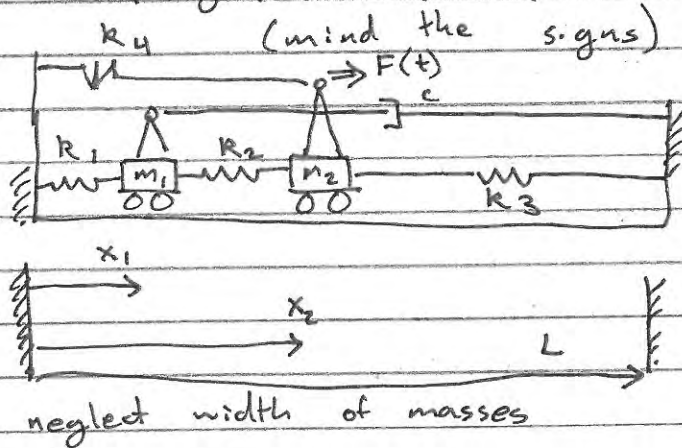 (mind the signs)
k4
F(t)
c
k1
k2
m1
m2
k3
x1
x2
L
neglect width of masses